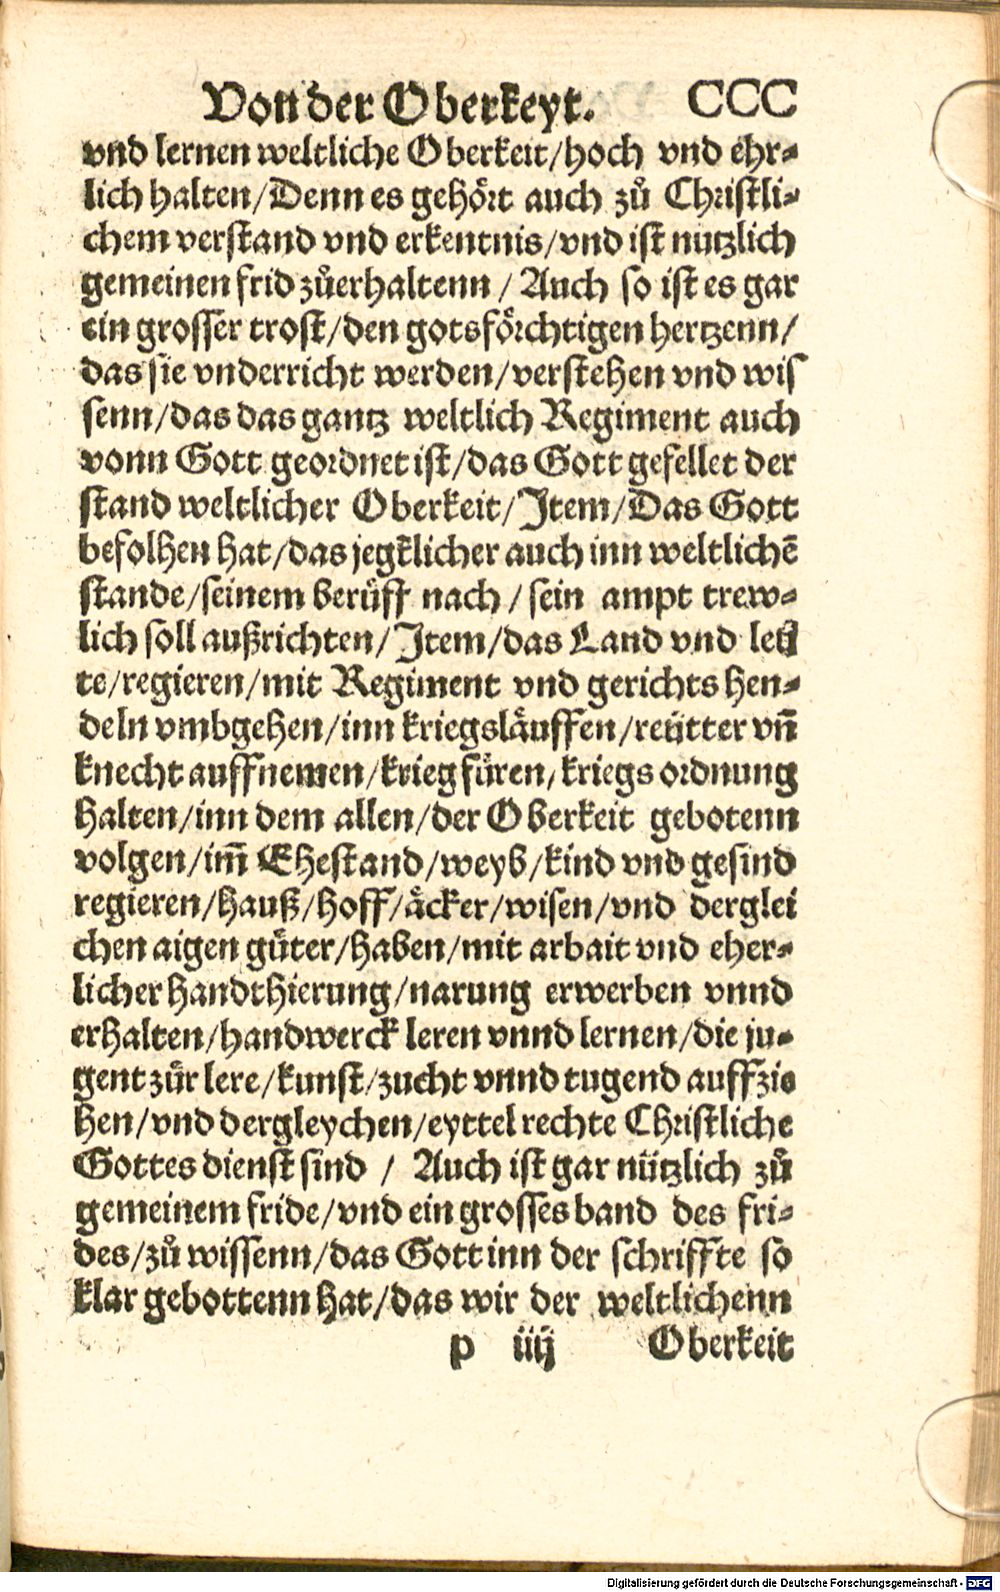 Von der Oberkeyt. CCC
vnd lernen weltliche Oberkeit/hoch vnd ehr-
lich halten/Denn es gehört auch zů Christli-
chem verstand vnd erkentnis/vnd ist nutzlich
gemeinen frid zůerhaltenn / Auch so ist es gar
ein grosser trost/den gotsförchtigen hertzenn/
das sie vnderricht werden/verstehen vnd wis
senn/das das gantz weltlich Regiment auch
vonn Gott geordnet ist/das Gott gefellet der
stand weltlicher Oberkeit/Item/Das Gott
befolhen hat/das jegklicher auch inn weltlichē
stande/seinem berůff nach / sein ampt trew-
lich soll außrichten/Item/das Land vnd leü
te/regieren/mit Regiment vnd gerichts hen-
deln vmbgehen/inn kriegsläuffen/reütter vñ
knecht auffnemen/krieg füren/kriegs ordnung
halten/inn dem allen/der Oberkeit gebotenn
volgen/im̄ Ehestand/weyb/kind vnd gesind
regieren/hauß/hoff/äcker/wisen/vnd derglei
chen aigen güter/haben/mit arbait vnd eher-
licher handthierung/narung erwerben vnnd
erhalten/handwerck leren vnnd lernen/die ju-
gent zůr lere/kunst/zucht vnnd tugend auffzie
hen/vnd dergleychen/eyttel rechte Christliche
Gottes dienst sind / Auch ist gar nützlich zů
gemeinem fride/vnd ein grosses band des fri-
des/zů wissenn/das Gott inn der schriffte so
klar gebottenn hat/das wir der weltlichenn
p iiij Oberkeit
Digitalisierung gefördert durch die Deutsche Forschungsgemeinschaft - DFG